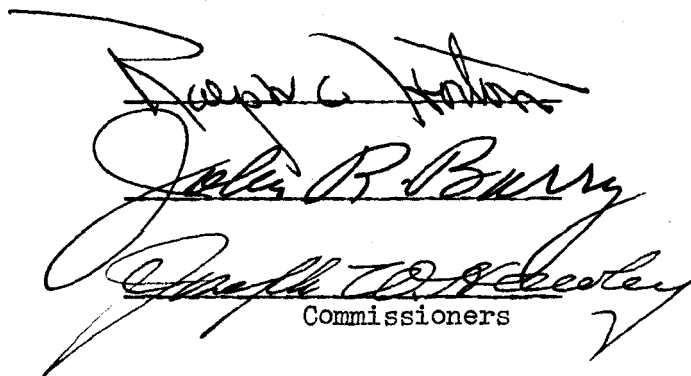 Ralph C Horton
John R. Burry
Joseph W.
Commissioners